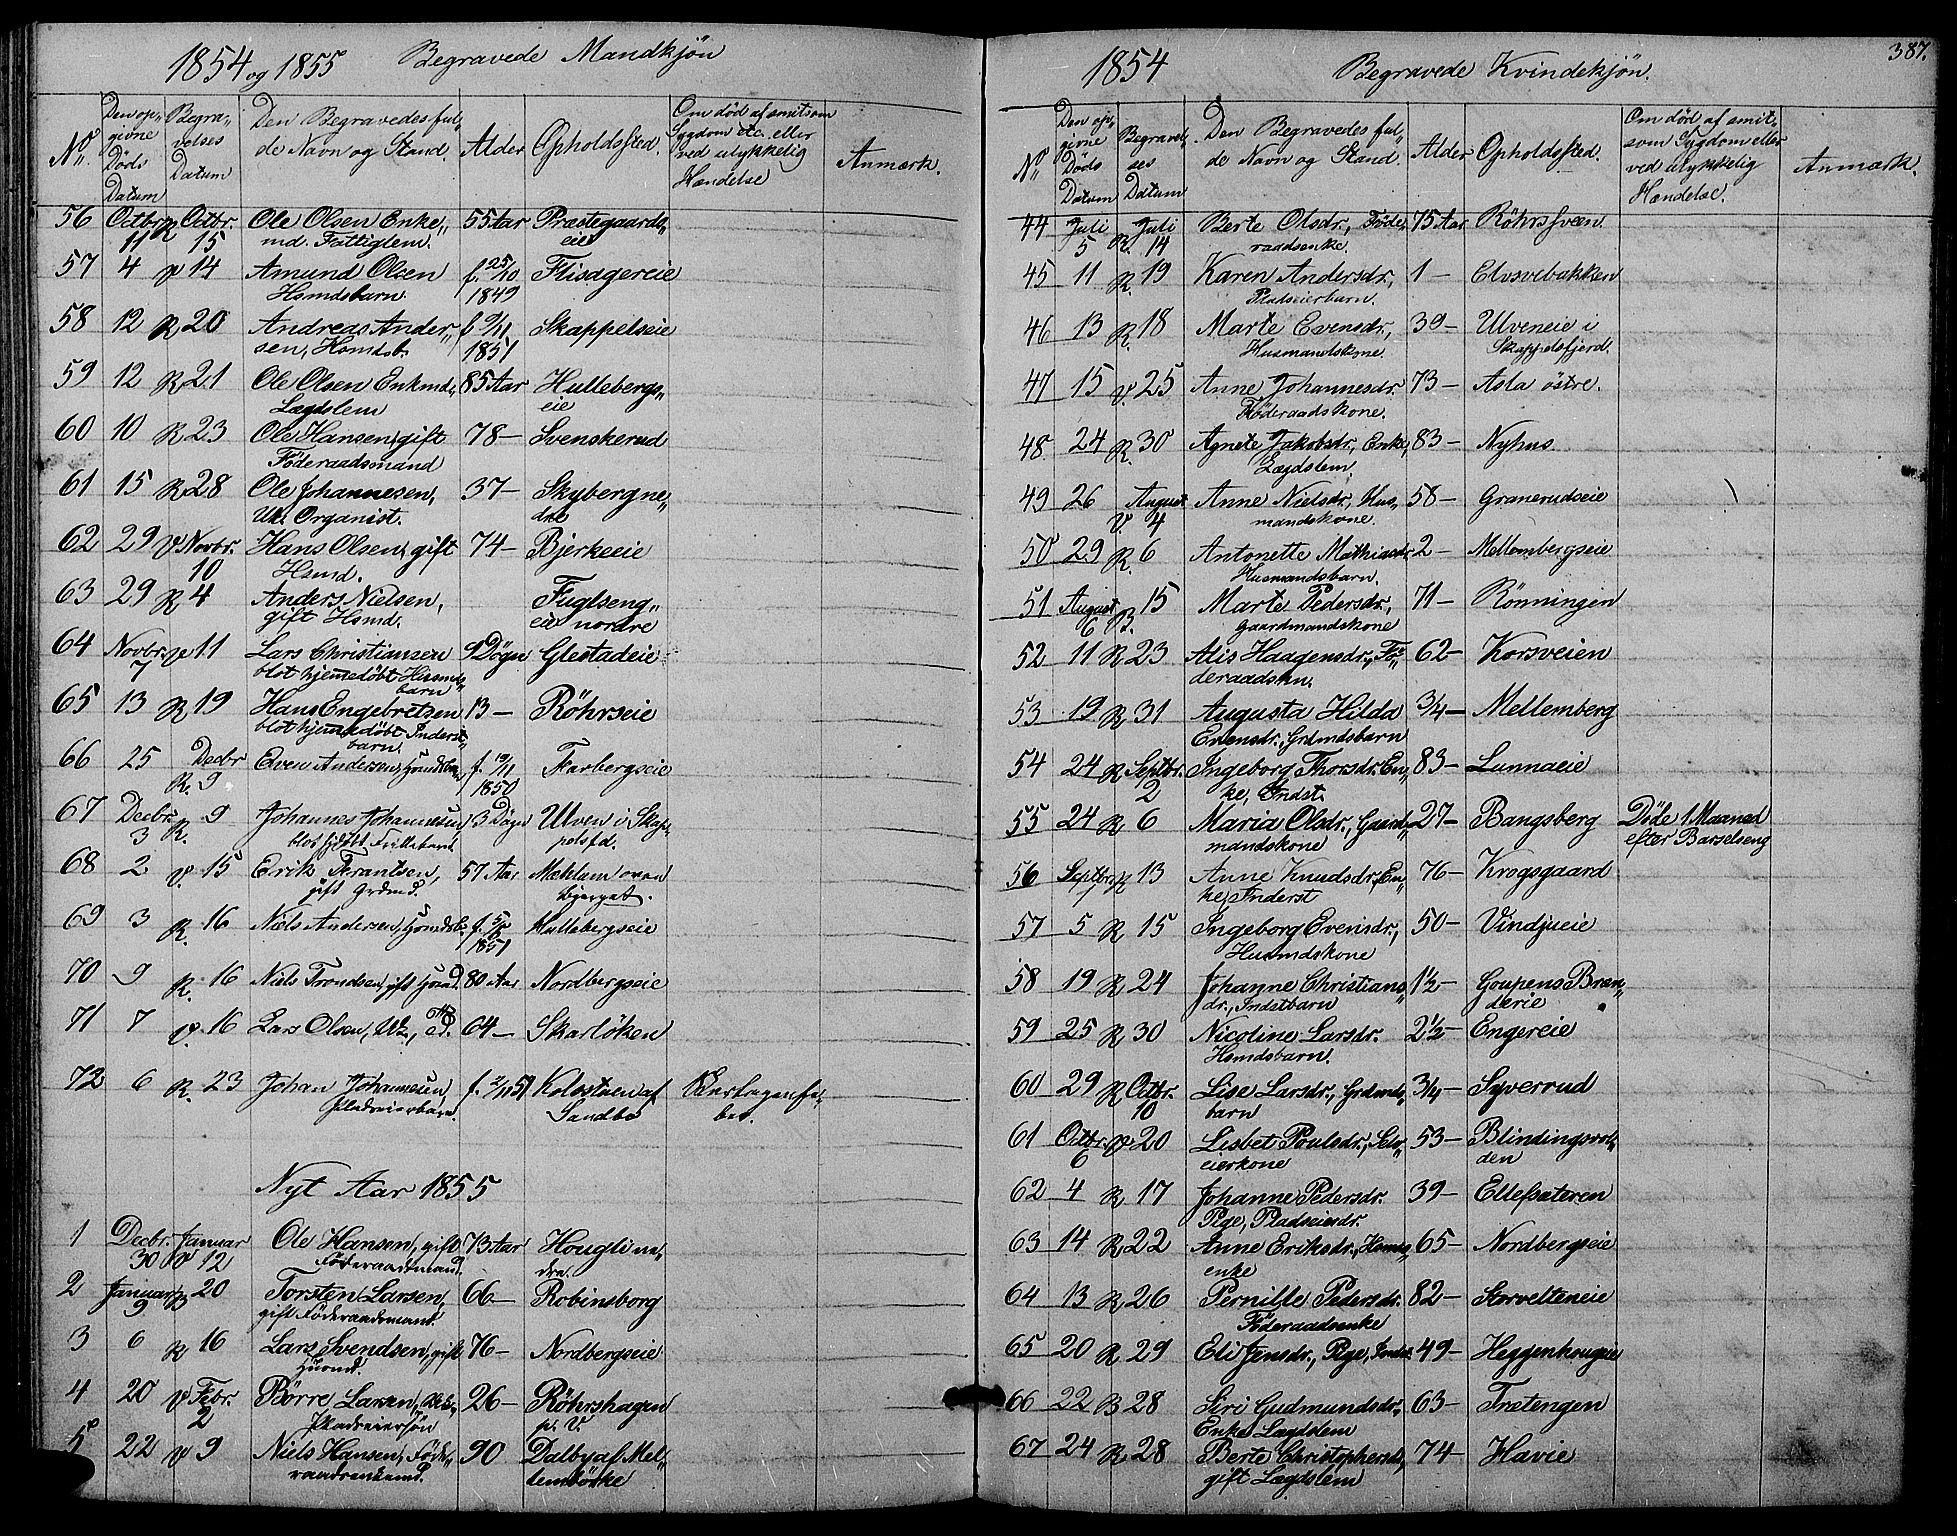 1854 og 1855 Begravede Mandkjön
No. Den opgivne Döds Datum Begravelses Datum Den Begravedes fulde Navn og Stand. Alder Opholdssted. Om död af smitsom Sygdom etc. eller ved ulykkelig Hændelse Anmærk.
56 Octbr. 11 R Octbr. 15 Ole Olsen Enke„ 55 Aar Præstegaards„
md. Fattiglem. eie
57 4 V 14 Amund Olsen f. 25/10 Flisagereie
Hsmdsbarn. 1849
58 12 R 20 Andreas Ander„ f 9/11 Skappelseie
sen, Hsmdsb. 1851
59 12 R 21 Ole Olsen Enkmd„ 85 Aar Hullebergs„
Lægdslem eie
60 10 R 23 Ole Hansen, gift 78 — Svenskerud
Föderaadsmand
61 15 R 28 Ole Johannesen, 37 — Skybergne„
Uk. Organist. dre
62 29 V Novbr. 10 Hans Olsen, gift 74 — Bjerkeeie
Hsmd.
63 29 R 4 Anders Nielsen, Fuglseng„
gift Hsmd. eie nordre
64 Novbr. 7 V 11 Lars Christiansen 9 Dögn Glestadeie
blot hjemmedöbt Husmds„
barn
65 13 R 19 Hans Engebretsen 13 — Röhrseie
blot hjemmedöbt Inderst„
barn.
66 25 R. Decbr 9 Even Andersen, Hsmdsbn, f. 19/11 Farbergseie
1850
67 Decbr. 3 R. 9 Johannes Johannesen 13 Dögn Ulven i Skap„
polsfd.
68 2 V. 15 Erik Frantsen, 57 Aar Mæhlum oven
gift Grdmd. bjerget.
69 3 R. 16 Niels Andersen, Hsmdsb. Hullebergseie
1851
70 9 R. 16 Niels Trondsen, gift Hsmd. 80 Aar Nordbergseie
71 7 V. 16 Lars Olsen, 64 — Skarlöken
72 6 R. 23 Johan Johannesen, Kolostuen af
Pladseierbarn Sandbo
Nyt Aar 1855
1 Decbr. 30 V Januar 12 Ole Hansen, gift 73 Aar Hougli ne„
Föderaadsmand. dre.
2 Januar 9 R 20 Torsten Larsen, 66 — Robinsborg
gift Föderaadsmand.
3 6 R 16 Lars Svendsen, gift 76 — Nordbergseie
Husmd.
4 20 V Febr. 2 Börre Larsen, 26 — Röhrshagen
Pladseiersön p. V.
5 22 V 9 Niels Hansen, Föde„ 90 Dalby af Mel„
raadsenkemd. lembörke
387.
1854 Begravede Kvindekjön.
No. Den opgivne Döds Datum Begravelses Datum Den Begravedes fulde Navn og Stand. Alder Opholdssted. Om död af smitsom Sygdom eller ved ulykkelig Hændelse. Anmærk.
44 Juli 5 R. Juli 14 Berte Olsdr., Föde„ 75 Aar Röhrssveen
raadsenke.
45 11 R. 19 Karen Andersdr., 1 — Elvsvebakken
Pladseierbarn.
46 13 R. 18 Marte Evensdr., 39 — Ulveneie i
Husmandskone. Skappelsfjerd.
47 15 V. 25 Anne Johannesdr. 73 — Asla östre.
Föderaadskone.
48 24 R. 30 Agnete Jakobsdr., Enke, 83 — Nyhus
Lægdslem
49 26 V. August 4 Anne Nielsdr., Hus„ 58 — Granerudseie
mandskone.
50 29 R. 6 Antonette Mathiasdr. 2 — Mellembergseie
Husmandsbarn.
51 August 6 B. 15 Marte Pedersdr., 71 — Rönningen
Gaardmandskone
52 11 R 23 Alis Haagensdr., Fö„ 62 — Korsveien
deraadskn.
53 19 R 31 Augusta Hilda 3/4 — Mellemberg
Evensdr., Grdmdsbarn
54 24 R Septbr. 2 Ingeborg Thorsdr. En„ 83 — Lunnaeie
ke, Indst.
55 24 R 6 Maria Olsdr., Gaard„ 27 — Bangsberg Döde 1 Maaned
mandskone efter Barselseng
56 Septbr. 1 R 13 Anne Knudsdr., En„ 76 — Krogsgaard
ke, Inderst
57 5 R 15 Ingeborg Evensdr., 50 — Vindjueie
Husmdskone
58 19 R 24 Johanne Christians„ 1½ — Goupens Bræn„
dr., Indstbarn derie
59 25 R 30 Nicoline Larsdr. 2½ — Engereie
Hsmdsbarn.
60 29 R Octbr. 10 Lise Larsdr., Grdmds„ 3/4 — Syverrud
barn
61 Octbr. 6 V 20 Lisbet Poulsdr., Selv„ 53 — Blindingsvol„
eierkone den
62 4 R 17 Johanne Pedersdr. 39 — Ellefsæteren
Pige, Pladseierdr.
63 14 R 22 Anne Eriksdr., Hsmds„ 65 — Nordbergseie
enke
64 13 R 26 Pernille Pedersdr. 82 — Storvelteneie
Föderaadsenke
65 20 R 29 Eli Jensdr., Pige, Inderst 49 — Heggenhougeie
66 22 B 28 Siri Gudmundsdr., 63 — Tretengen
Enke Lægdslem
67 24 R 28 Berte Christophersdr, 74 — Havie
gift Lægdslem